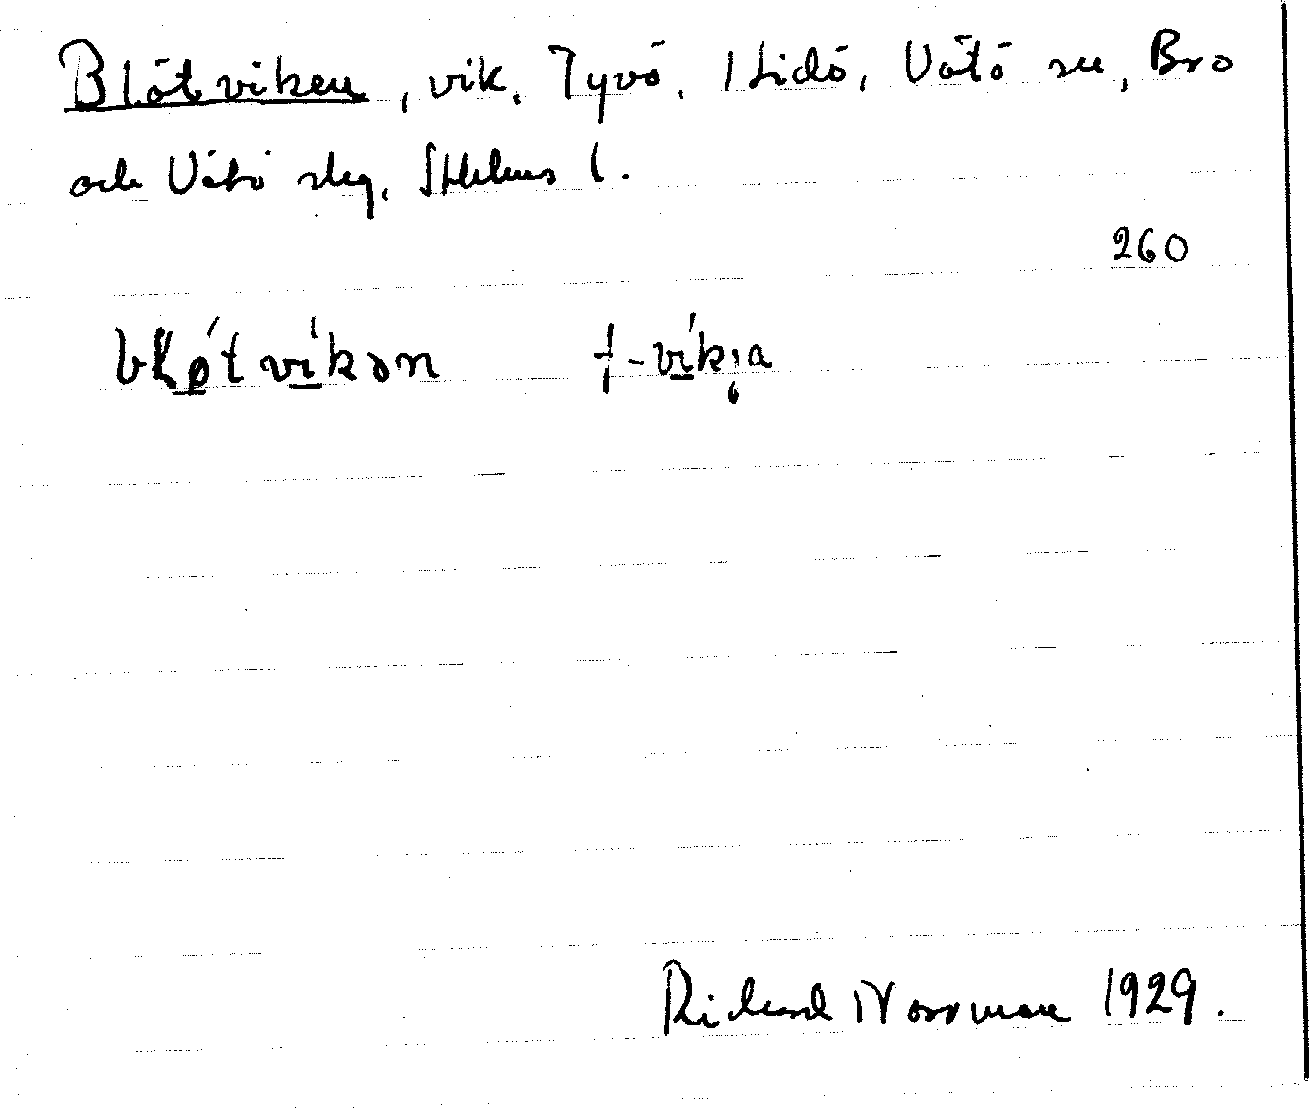 Blötviken, vik, Tyvö, Lidö, Vätö sn, Bro
och Vätö slg, Sthlms l.
260
bḷø̀tvìkən †-vìki̯a
Richard Norrman 1929.